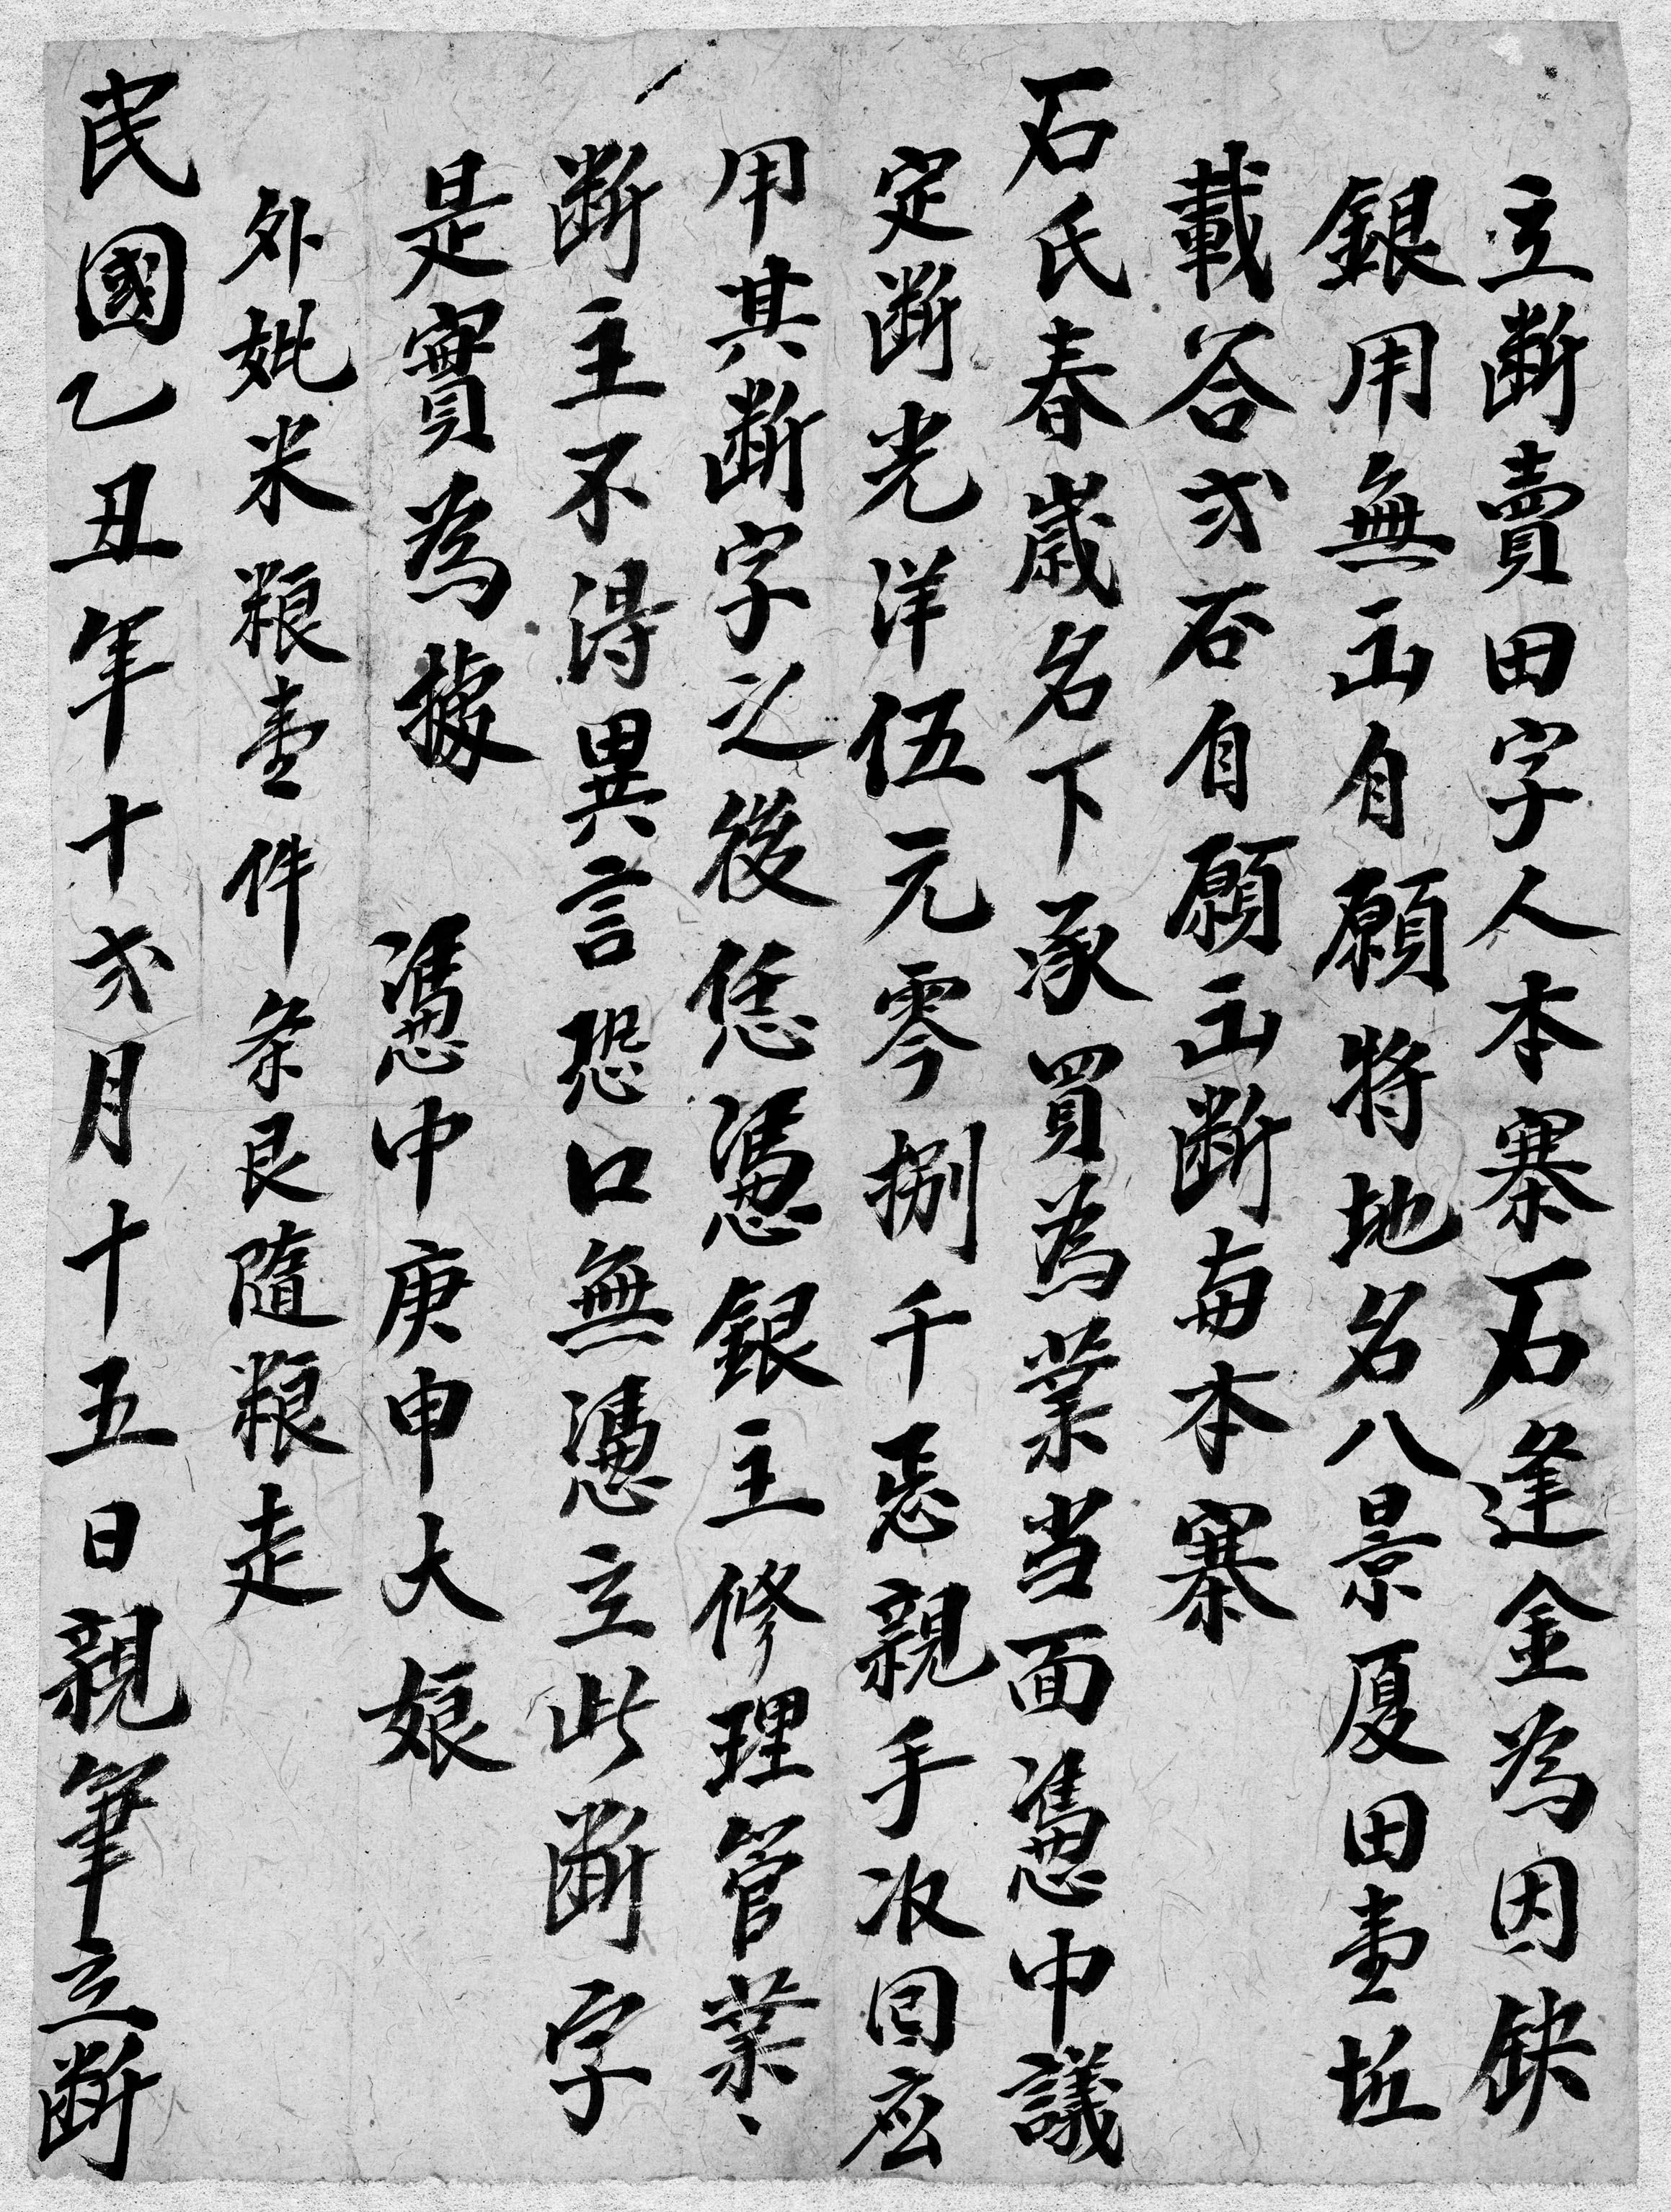 立断賣田字人本寨石逢金為因缺
銀用無出自願將地名八景厦田壹坵
載谷弍石自願出断與本寨
石氏春歲名下承買為業当面憑中議
定断光洋伍元零捌千悉親手収回应
用其断字之後恁憑銀主修理管業、
断主不得異言恐口無憑立此断字
是實為據 憑中庚申大娘
外妣米粮壹件条艮隨粮走
民國乙丑年十弍月十五日親筆立断